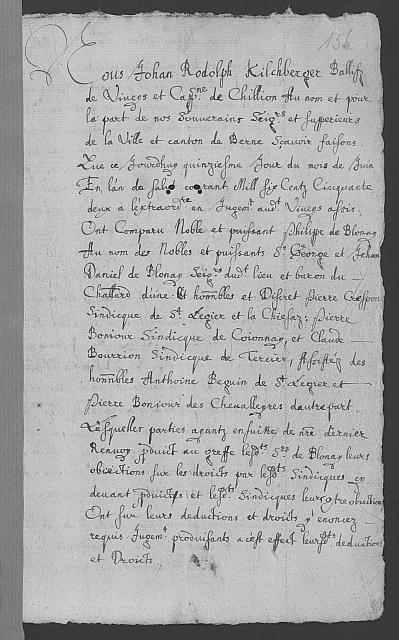 156
Nous Johan Rodolph Kilchberger Ballifz
de Viveys et Cap.ne de Chillion Au nom et pour
la part de nos Souverains Seig.rs et supperieurs
de la Ville et canton de Berne Scavoir faisons
Que ce Jourdhuy quinziesme Jour du mois de Juin
En l'an de salut courant Mill six Centz Cinquante
deux a l'extraord.re en Jugem.t aud.t Viveys assis
Ont Comparu Noble et puissant Philippe de Blonay
Au nom des Nobles et puissants S.rs George et Jehan
Daniel de Blonay Seig.rs dud.t lieu et baron du
Chattard d'une: Et honnbles et Discret Pierre Crespon
Sindicque de S.t Legier et la Chiesaz: Pierre
Bonjour Sindicque de Coionnay, et Claude
Bourrion Sindicque de Tercier, Assistez des
honnbles Anthoine Beguin de S.t Legier et
Pierre Bonjour des Chevalleyres dautre part
Lesquelles parties ayantz ensuitte de nre dernier
Renvoy pduict au greffe lesd.ts S.rs de Blonay leurs
obiections sur les droicts par lesd.ts Sindicques cy
devant pduicts: et lesd.ts Sindicques leurs obiections
Ont sur leurs deductions et droicts y enoncez
requis Jugem.t produisants a cest effect leursd.ts deductions
et Droicts